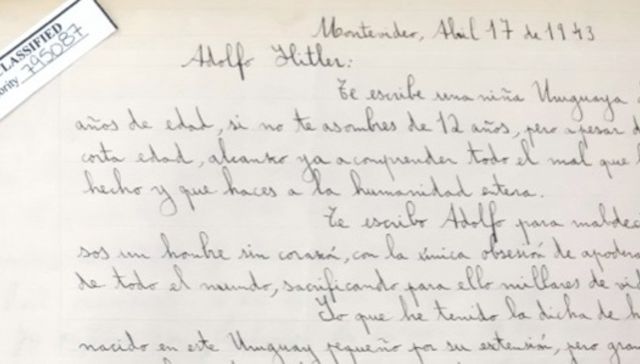 CLASSIFIED
ority 795087
Montevideo, Abril 17 de 1943
Adolfo Hitler:
Te escribe una niña Uruguaya
años de edad, si no te asombres de 12 años, pero apesar d
corta edad, alcanso ya a comprender todo el mal que h
hecho y que haces a la humanidad entera.
Te escribo Adolfo para maldec
sos un hombre sin corazón, con la única obsesión de apodera
de todo el mundo, sacrificando para ello millares de vid
Yo que he tenido la dicha de h
nacido en este Uruguay pequeño por su extensión, pero gran